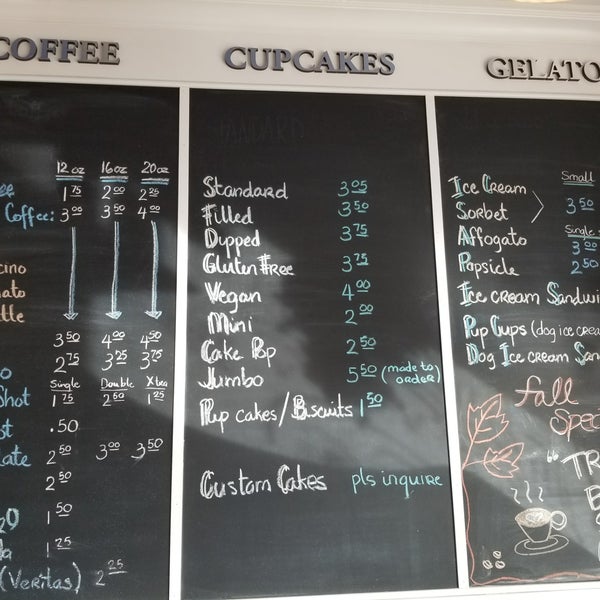 COFFEE
12 oz 16 oz 20 oz
1.75 2.00 2.25
Coffee: 3.00 3.50 4.00
3.50 4.00 4.50
2.75 3.25 3.75
Single Double Xtra
Shot 1.75 2.50 1.25
.50
2.50 3.00 3.50
2.50
1.50
1.25
(Veritas) 2.25
CUPCAKES
Standard 3.05
Filled 3.50
Dipped 3.75
Gluten Free 3.75
Vegan 4.00
Mini 2.00
Cake Pop 2.50
Jumbo 5.50 (made to order)
Pup cakes/Biscuits 1.50
Custom Cakes pls inquire
GELATO
Small
Ice Cream
Sorbet 3.50
Single
Affogato 3.00
Popsicle 2.50
Ice cream
Pup Cups (dog ice
Dog Ice cream
fall